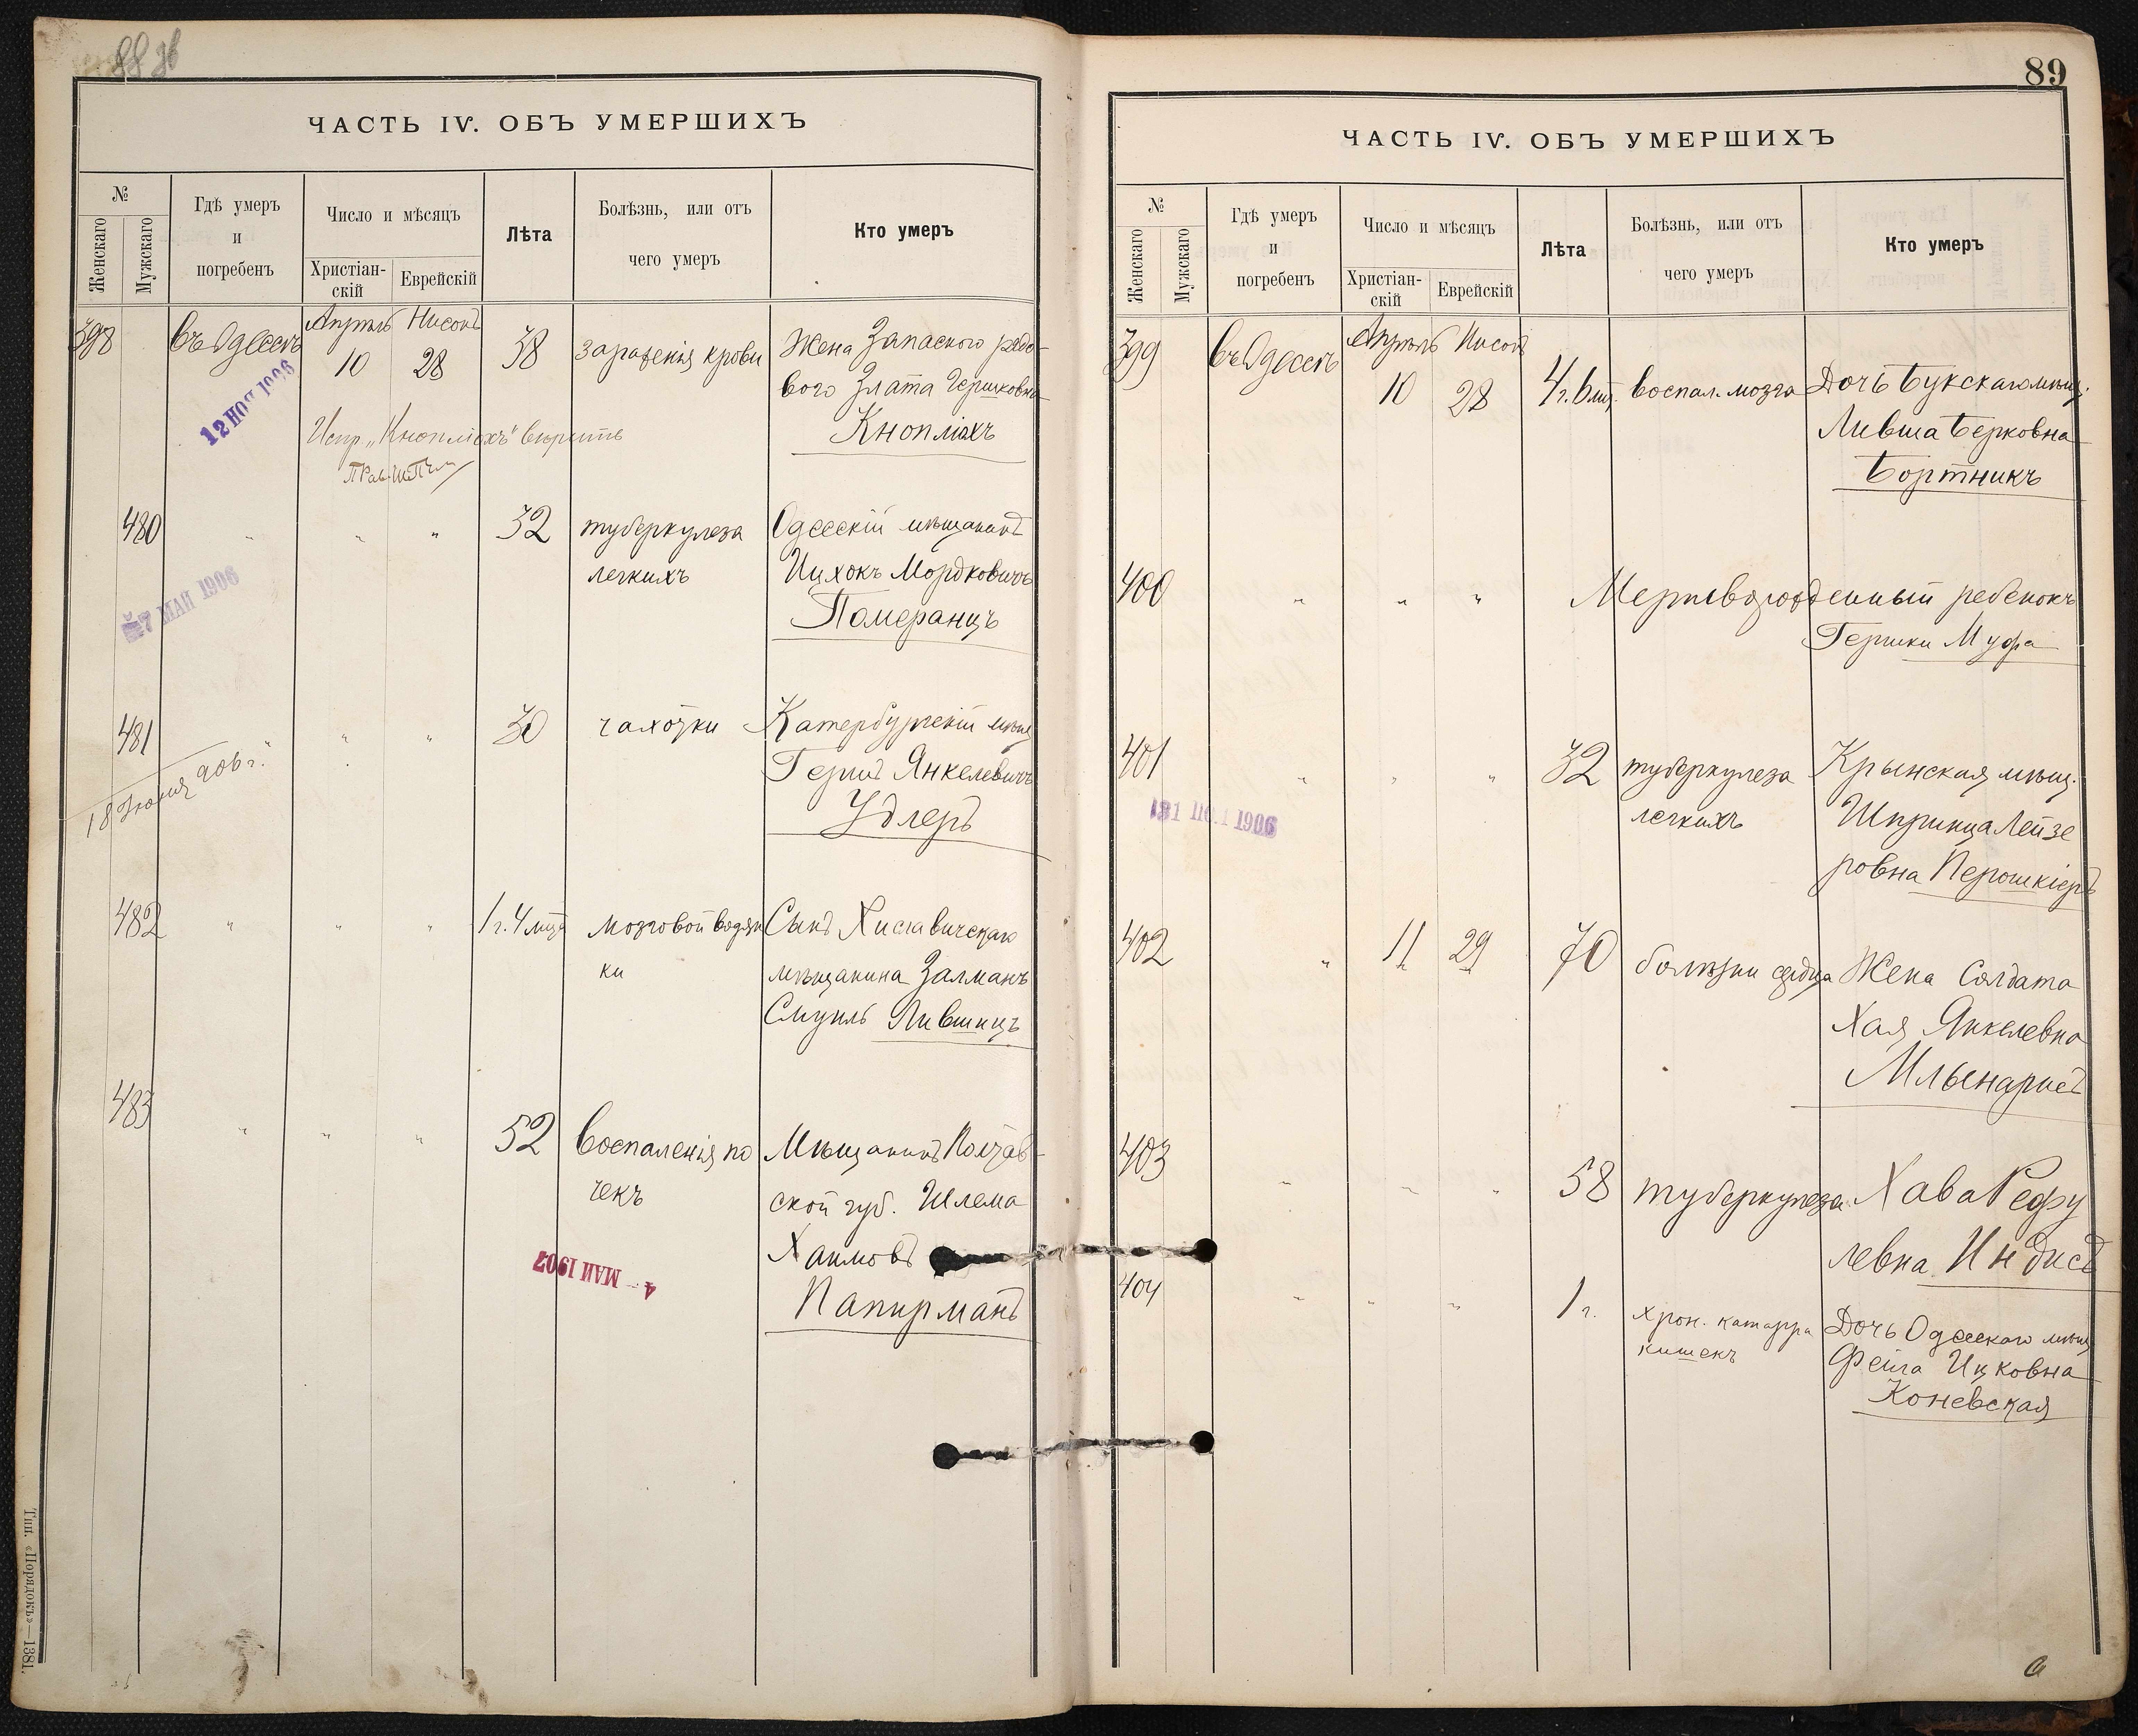 ЧАСТЬ IV. ОБЪ УМЕРШИХЪ
№
Женскаго
Мужскаго
Гдѣ умеръ
и
погребенъ
Число и мѣсяцъ
Христіан-
скій
Еврейскій
Лѣта
Болѣзнь, или отъ
чего умеръ
Кто умеръ
398 въ Одессѣ Апрѣль 10 Нисонъ 28 38 зараженія крови Жена Запаснаго рядо-
вого Злата Гершковна
Кнопміахъ
12 НОЯ 1906
Испр. „Кнопміахъ" вѣрить
480 " " " 32 туберкулеза Одесскій мѣщанинъ
легкихъ Ицхокъ Мордковичъ
Померанцъ
7 МАЙ 1906
481 " " " 30 чахотки Катербургскій мѣщ.
Гершъ Янкелевичъ
Удлеръ
18 Іюня 906 г.
482 " " " 1 г. 4 мца мозговой водян
ки Сынъ Хиславичскаго
мѣщанина Залманъ
Смуиль Лившицъ
483 " " " 52 воспаленія по
чекъ Мѣщанинъ Полтав-
ской губ. Шлема
Хаимовъ
Папирманъ
4 - МАЙ 1907
Тип. «Порядокъ»—1381.
89
ЧАСТЬ IV. ОБЪ УМЕРШИХЪ
№
Женскаго
Мужскаго
Гдѣ умеръ
и
погребенъ
Число и мѣсяцъ
Христіан-
скій
Еврейскій
Лѣта
Болѣзнь, или отъ
чего умеръ
Кто умеръ
399 въ Одессѣ Апрѣль 10 Нисонъ 28 4 г. 6 мц. воспал. мозга Дочь Букскаго мѣщ.
Ливша Берковна
Бортникъ
400 " " " Мертворожденный ребенокъ
Гершки Муфа
401 " " " 32 туберкулеза Крынская мѣщ.
легкихъ Шпринца Лейзе
ровна Перошкіеръ
1906
402 " 11 29 70 болѣзни сердца Жена Солдата
Хая Янкелевна
Мльенарисъ
403 " " " 58 туберкулеза Хава Рефу
левна Индисъ
404 " " " 1 г. хрон. катарра Дочь Одесскаго мѣщ
кишекъ Фейга Ицковна
Коневская